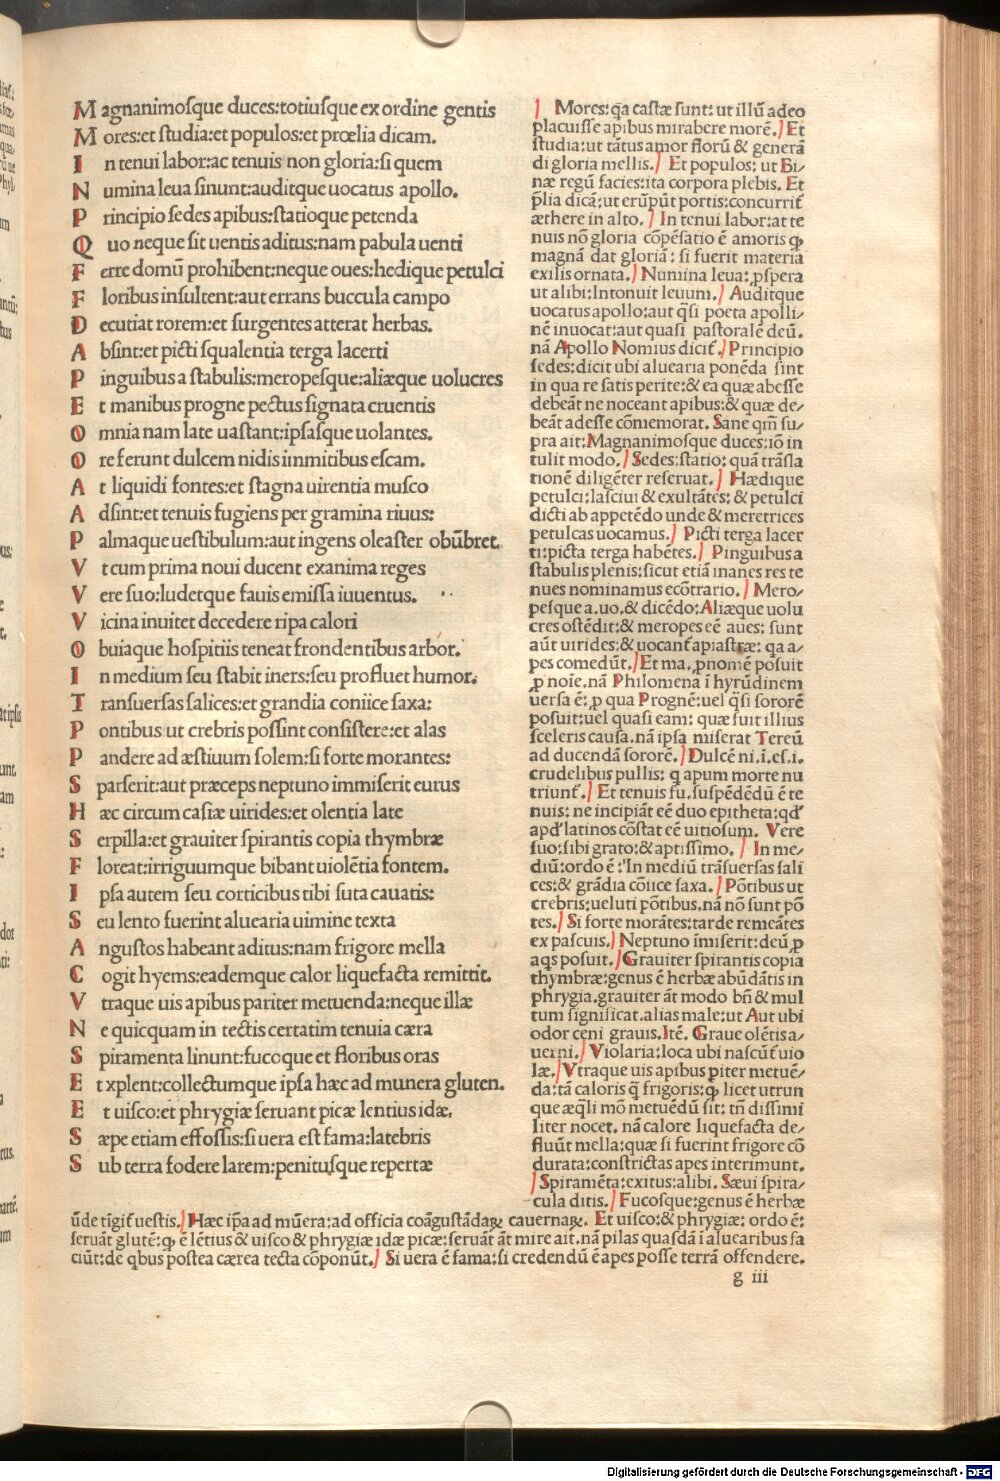 Magnanimosque duces:totiusque ex ordine gentis
Mores:et studia:et populos:et prœlia dicam.
In tenui labor:ac tenuis non gloria:si quem
Numina leua sinunt:auditque uocatus apollo.
Principio sedes apibus:statioque petenda
Quo neque sit uentis aditus:nam pabula uenti
Ferre domū prohibent:neque oues:hedique petulci
Floribus insultent:aut errans buccula campo
Decutiat rorem:et surgentes atterat herbas.
Absint:et picti squalentia terga lacerti
Pinguibus a stabulis:meropesque:aliæque uolucres
Et manibus progne pectus signata cruentis
Omnia nam late uastant:ipsasque uolantes.
Ore ferunt dulcem nidis immitibus escam.
At liquidi fontes:et stagna uirentia musco
Adsint:et tenuis fugiens per gramina riuus:
Palmaque uestibulum:aut ingens oleaster obūbret.
Vt cum prima noui ducent exanima reges
Vere suo:ludetque fauis emissa iuuentus.
Vicina inuitet decedere ripa calori
Obuiaque hospitiis teneat frondentibus arbor.
In medium seu stabit iners:seu profluet humor.
Transuersas salices:et grandia coniice saxa:
Pontibus ut crebris possint consistere:et alas
Pandere ad æstiuum solem:si forte morantes:
Sparserit:aut præceps neptuno immiserit eurus
Hæc circum casiæ uirides:et olentia late
Serpilla:et grauiter spirantis copia thymbræ
Floreat:irriguumque bibant uiolētia fontem.
Ipsa autem seu corticibus tibi suta cauatis:
Seu lento fuerint aluearia uimine texta
Angustos habeant aditus:nam frigore mella
Cogit hyems:eademque calor liquefacta remittit.
Vtraque uis apibus pariter metuenda:neque illæ
Ne quicquam in tectis certatim tenuia cæra
Spiramenta linunt:fucoque et floribus oras
Et xplent:collectumque ipsa hæc ad munera gluten.
Et uisco:et phrygiæ seruant picæ lentius idæ.
Sæpe etiam effossis:si uera est fama:latebris
Sub terra fodere larem:penitusque repertæ
Mores:q̄a castæ sunt: ut illū adeo
placuisse apibus mirabere morē. Et
studia:ut tātus amor florū & generā
di gloria mellis. Et populos: ut Bi/
næ regū facies:ita corpora plebis. Et
p̄lia dicā:ut erūpūt portis:concurrit̄
æthere in alto. In tenui labor:at te
nuis nō gloria cōpēsatio ē amoris ꝙ
magnā dat gloriā: si fuerit materia
exilis ornata. Numina leua:ꝓspera
ut alibi:Intonuit leuum. Auditque
uocatus apollo:aut q̄si poeta apolli/
nē inuocat:aut quasi pastoralē deū.
nā Apollo Nomius dicit̄. Principio
sedes:dicit ubi aluearia ponēda sint
in qua re satis perite:& ea quæ abesse
debeāt ne noceant apibus:& quæ de/
beāt adesse cōmemorat. Sane qm̄ su/
pra ait:Magnanimosque duces:iō in
tulit modo. Sedes:statio: quā trāsla
tionē diligēter reseruat. Hædique
petulci:lasciui & exultātes: & petulci
dicti ab appetēdo unde & meretrices
petulcas uocamus. Picti terga lacer
ti:picta terga habētes. Pinguibus a
stabulis plenis:sicut etiā inanes res te
nues nominamus ecōtrario. Mero/
pesque a.uo.& dicēdo:Aliæque uolu
cres ostēdit:& meropes eē aues: sunt
aūt uirides:& uocant̄ apiastræ: q̄a a/
pes comedūt. Et ma.ꝓnomē posuit
ꝓ noīe.nā Philomena ī hyrūdinem
uersa ē:ꝓ qua Prognē:uel q̄si sororē
posuit:uel quasi eam: quæ fuit illius
sceleris causa.nā ipsa miserat Tereū
ad ducendā sororē. Dulcē ni.i.es.i.
crudelibus pullis: q̄ apum morte nu
triunt̄. Et tenuis fu.suspēdēdū ē te
nuis: ne incipiāt eē duo epitheta:qđ
apđ latinos cōstat eē uitiosum. Vere
suo:sibi grato:& aptissimo. In me/
diū:ordo ē:In mediū trāsuersas sali
ces:& grādia cōiice saxa. Pōtibus ut
crebris:ueluti pōtibus.nā nō sunt pō
tes. Si forte morātes:tarde remeātes
ex pascuis. Neptuno īmiserit:deū ꝓ
aq̄s posuit. Grauiter spirantis copia
thymbræ:genus ē herbæ abūdātis in
phrygia.grauiter āt modo bn̄ & mul
tum significat.alias male:ut Aut ubi
odor ceni grauis.Itē. Graue olētis a/
uerni. Violaria:loca ubi nascūt̄ uio
læ. Vtraque uis apibus ꝑiter metuē/
da:tā caloris q̄ frigoris:ꝙ licet utrun
que æq̄li mō metuēdū sit: tn̄ dissimi
liter nocet. nā calore liquefacta de/
fluūt mella:quæ si fuerint frigore cō
durata:constrictas apes interimunt.
Spiramēta:exitus:alibi. Sæui spira/
cula ditis. Fucosque:genus ē herbæ
ūde tīgit̄ uestis. Hæc ip̄a ad mūera:ad officia coāgustādaꝝ cauernaꝝ. Et uisco:& phrygiæ: ordo ē:
seruāt glutē:ꝙ ē lētius & uisco & phrygiæ idæ picæ:seruāt āt mire ait.nā pilas quasdā ī aluearibus fa
ciūt:de q̄bus postea cærea tecta cōponūt. Si uera ē fama:si credendū ē apes posse terrā offendere.
g iii
Digitalisierung gefördert durch die Deutsche Forschungsgemeinschaft - DFG